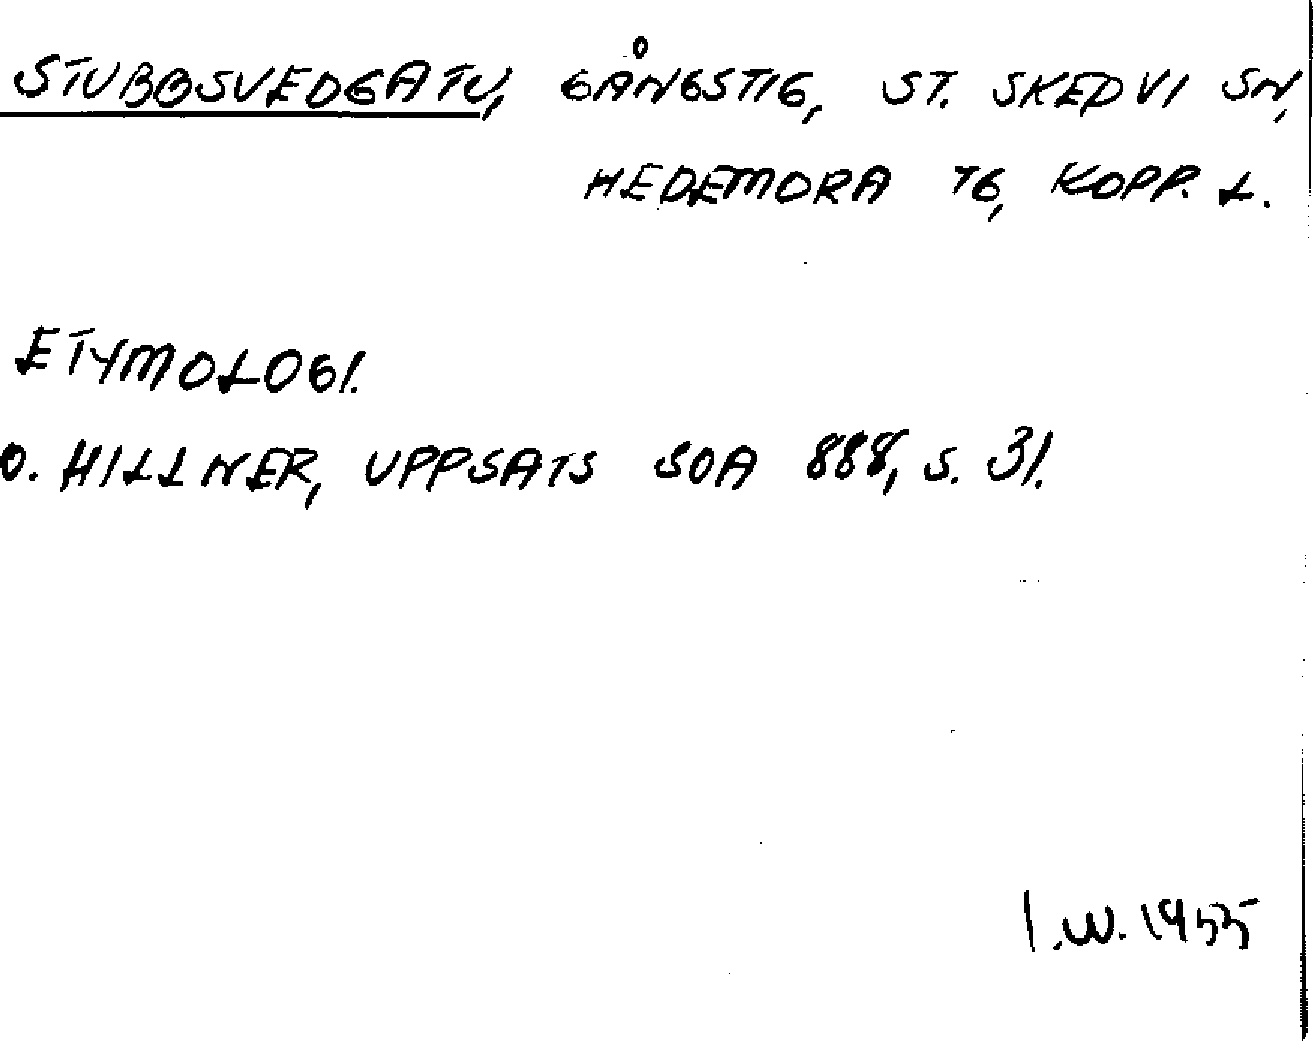 STUBBSVEDGATU, GÅNGSTIG, ST. SKEDVI SN,
HEDEMORA TG, KOPP. L.
ETYMOLOGI.
O. HILLNER, UPPSATS SOA 888, S. 31.
I.W. 1955